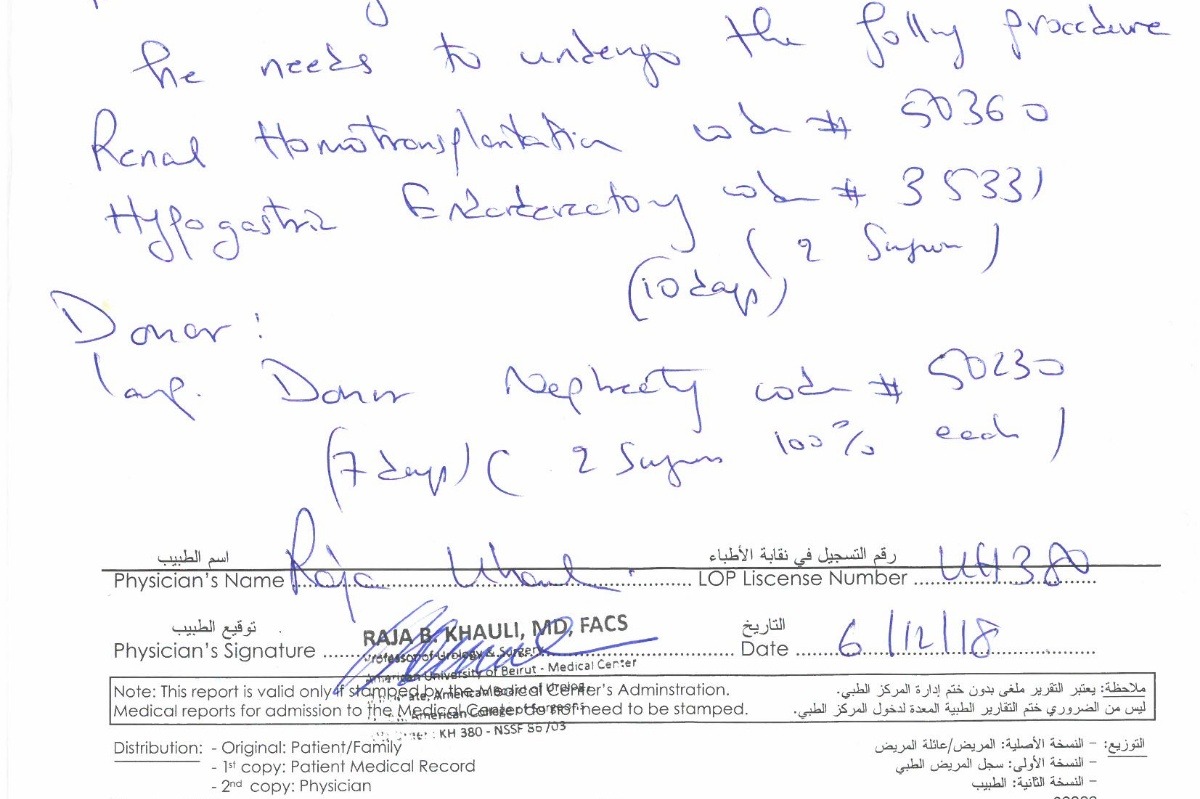 he needs to undergo the follwg procedure
Renal Homotransplantation code # 50360
Hypogastric Endarterectomy code # 35331
(10 days) (2 Surgeon)
Donor :
Lap. Donor Nephrecty code # 50230
(7 days) ( 2 Surgeons 100% each )
اسم الطبيب رقم التسجيل في نقابة الأطباء
Physician's Name Raja Khauli LOP Liscense Number KH 380
توقيع الطبيب التاريخ
RAJA B. KHAULI, MD, FACS
Physician's Signature Date 6/12/18
Professor of Urology & Surgery
American University of Beirut - Medical Center
Note: This report is valid only if stamped by the Medical Center's Adminstration. ملاحظة: يعتبر التقرير ملغى بدون ختم إدارة المركز الطبي.
American Board of Urology
Medical reports for admission to the Medical Center do not need to be stamped. ليس من الضروري ختم التقارير الطبية المعدة لدخول المركز الطبي.
American College of Surgeons
KH 380 - NSSF 86/03
Distribution: - Original: Patient/Family التوزيع: - النسخة الأصلية: المريض/عائلة المريض
- 1st copy: Patient Medical Record - النسخة الأولى: سجل المريض الطبي
- 2nd copy: Physician - النسخة الثانية: الطبيب